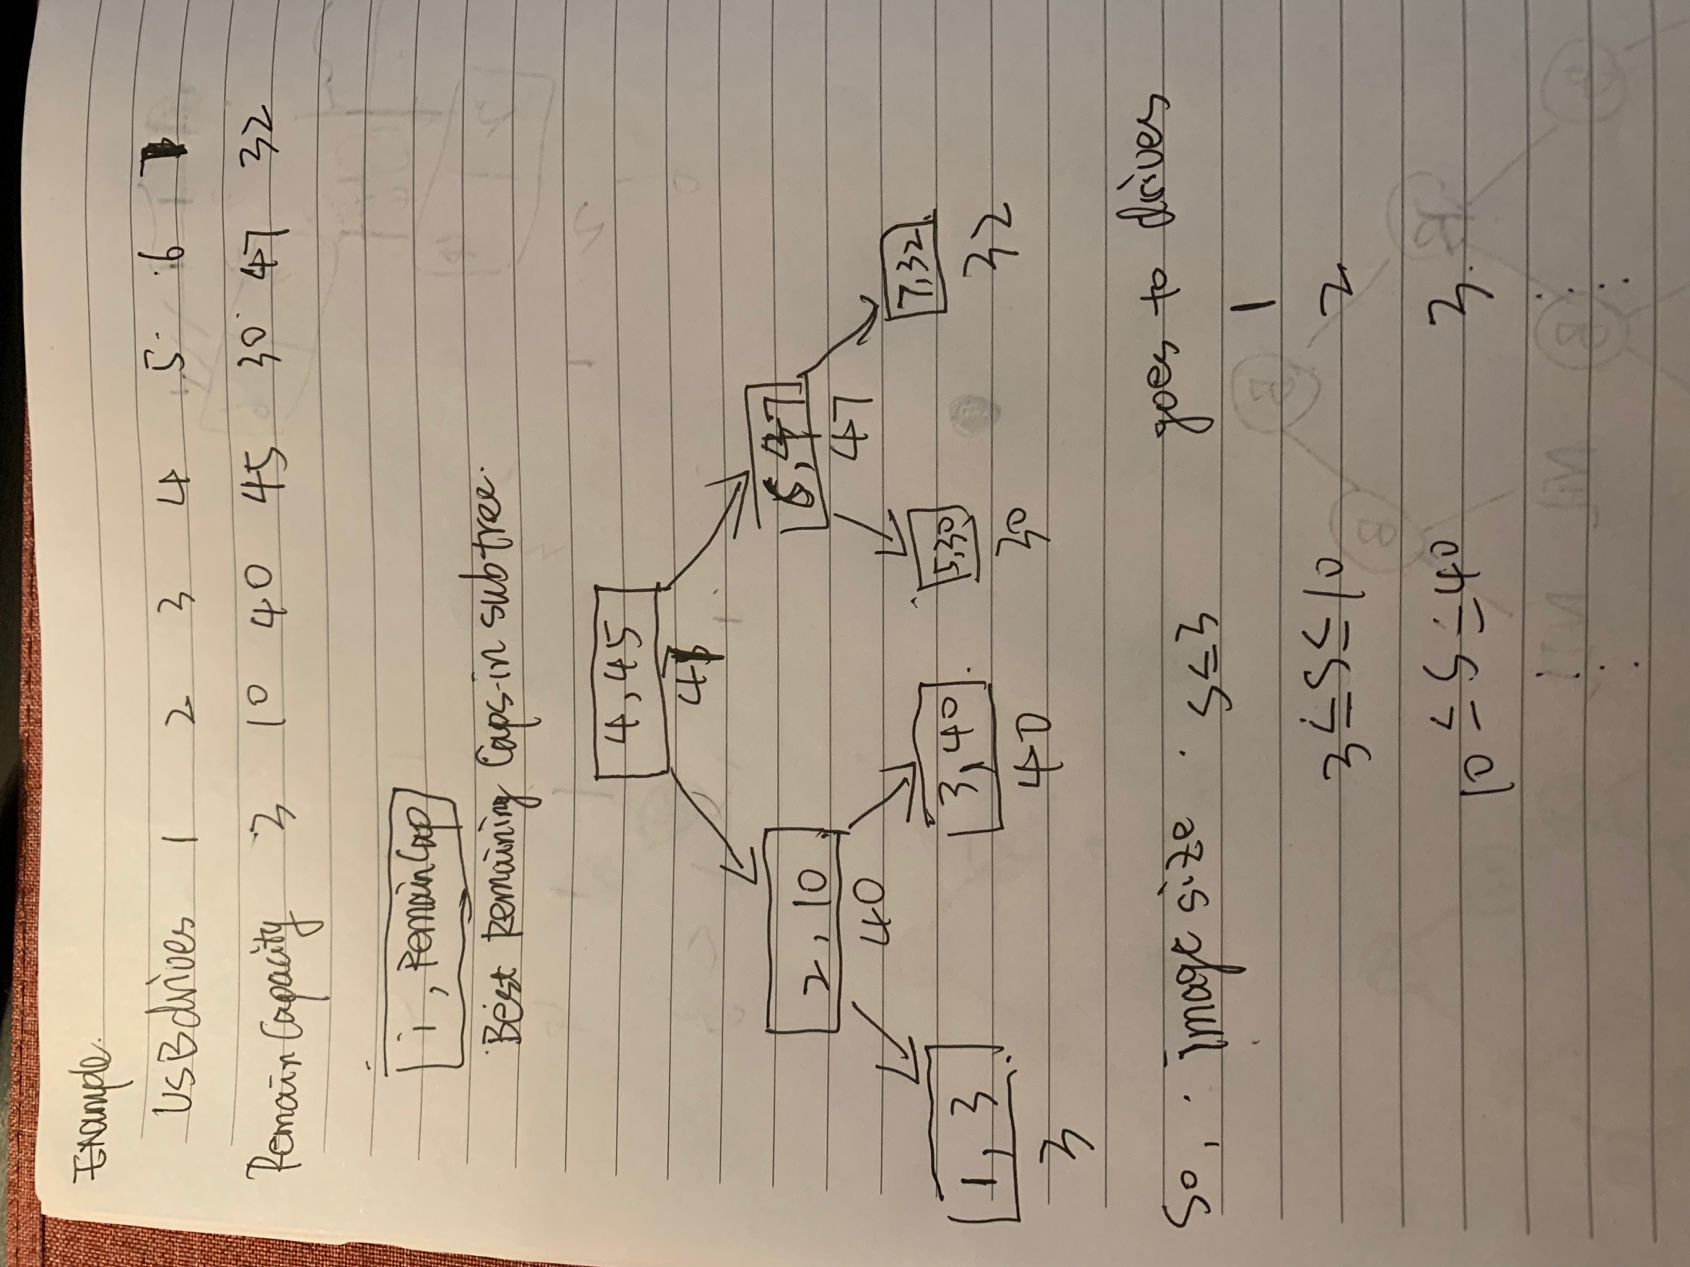 Example.
USBdrives 1 2 3 4 5 6 7
RemainCapacity 3 10 40 45 30 47 32
i, RemainCap
Best Remaining Caps in subtree.
4, 45
47
2, 10
6, 47
40
47
1, 3
3, 40
5,30
7,32
3
40
30
32
So, image size goes to drives
S≤3 1
3≤S≤10 2
10≤S≤40 3
⋮ ⋮